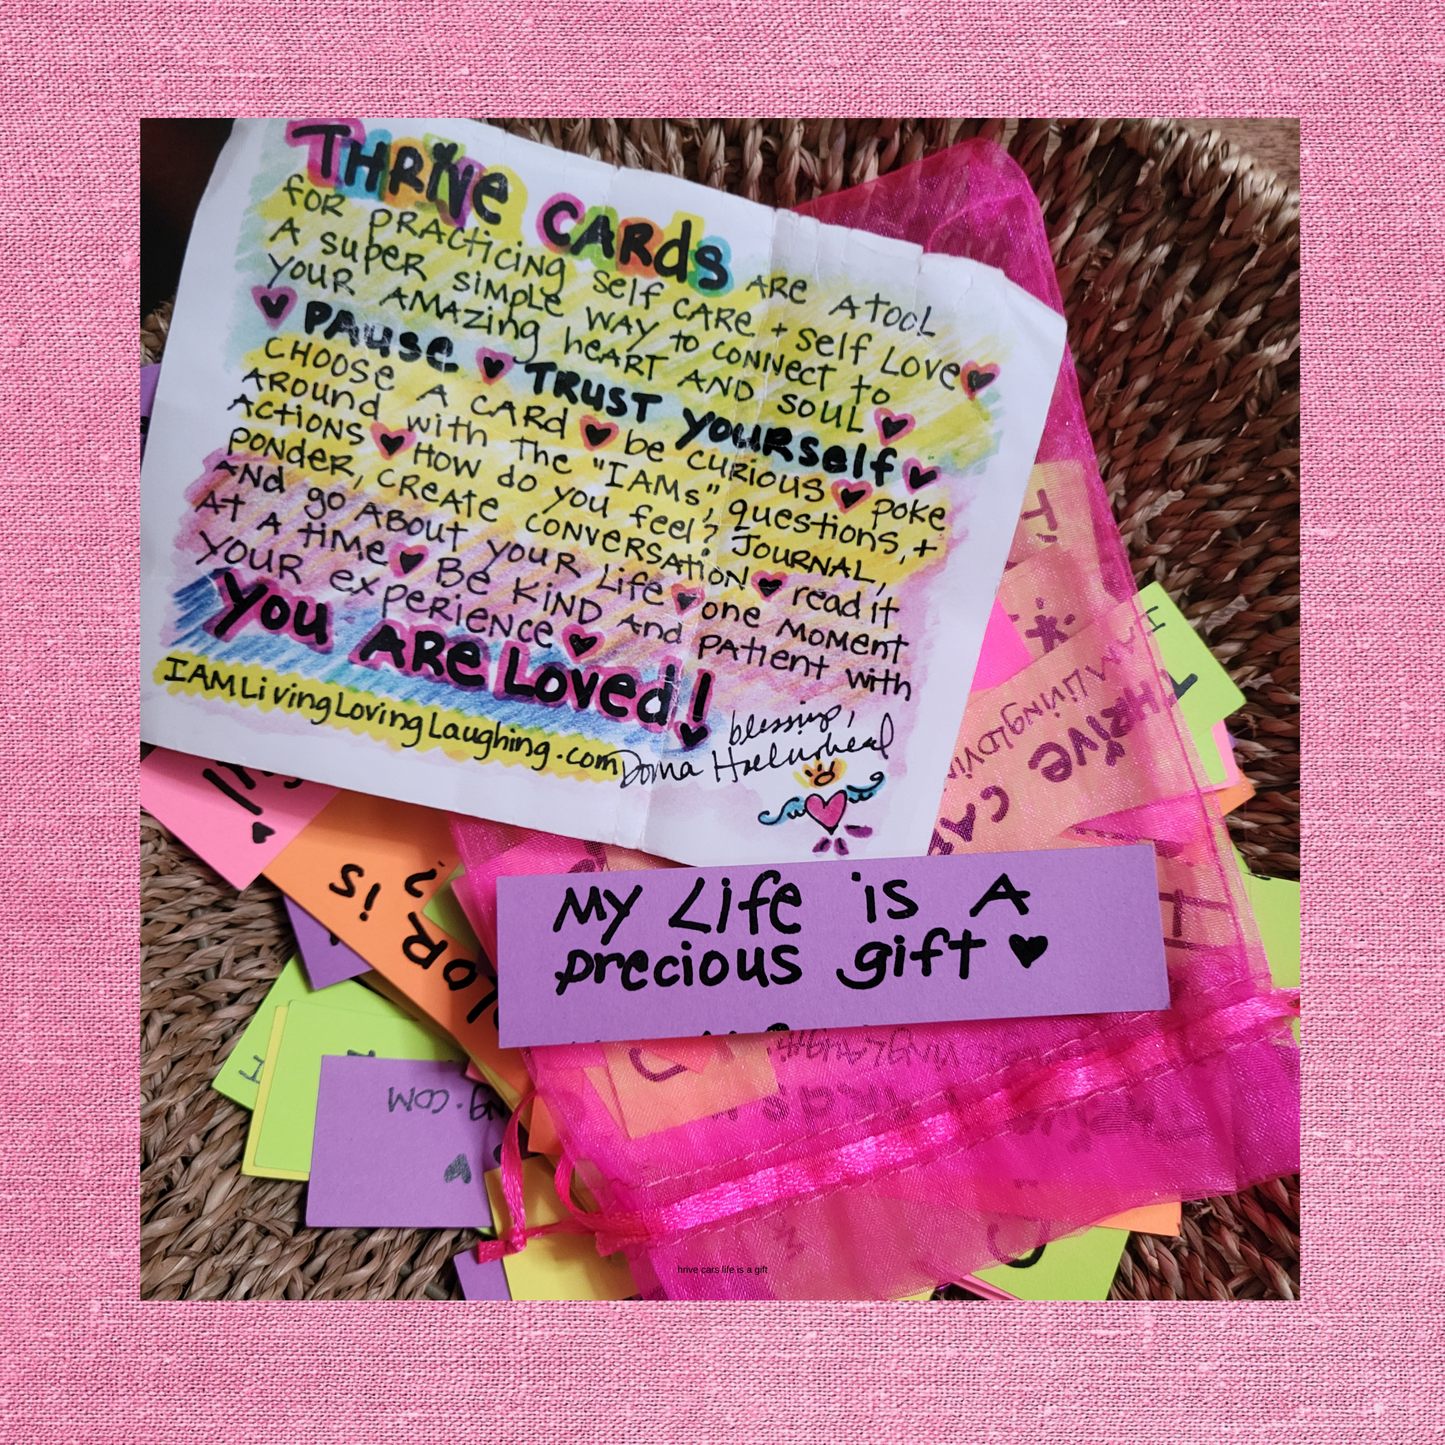 THRIVE CARDS ARE A TOOL
FOR PRACTICING SELF CARE + SELF LOVE♥
A SUPER SIMPLE WAY TO CONNECT TO
YOUR AMAZING HEART AND SOUL ♥
♥ PAUSE ♥ TRUST YOURSELF ♥
CHOOSE A CARD ♥ BE CURIOUS ♥ POKE
AROUND WITH THE "IAMs", QUESTIONS, +
ACTIONS ♥ HOW DO YOU FEEL? JOURNAL,
PONDER, CREATE CONVERSATION ♥ read it
AND GO ABOUT YOUR LIFE ♥ ONE MOMENT
AT A TIME ♥ BE KIND AND PATIENT WITH
YOUR EXPERIENCE ♥
YOU ARE LOVED!
IAMLivingLovingLaughing.com
blessings,
Donna
My Life is A
precious gift ♥
OR is
?
THRIVE CAR
IAMLivingLovin
NG.COM
hrive cars life is a gift